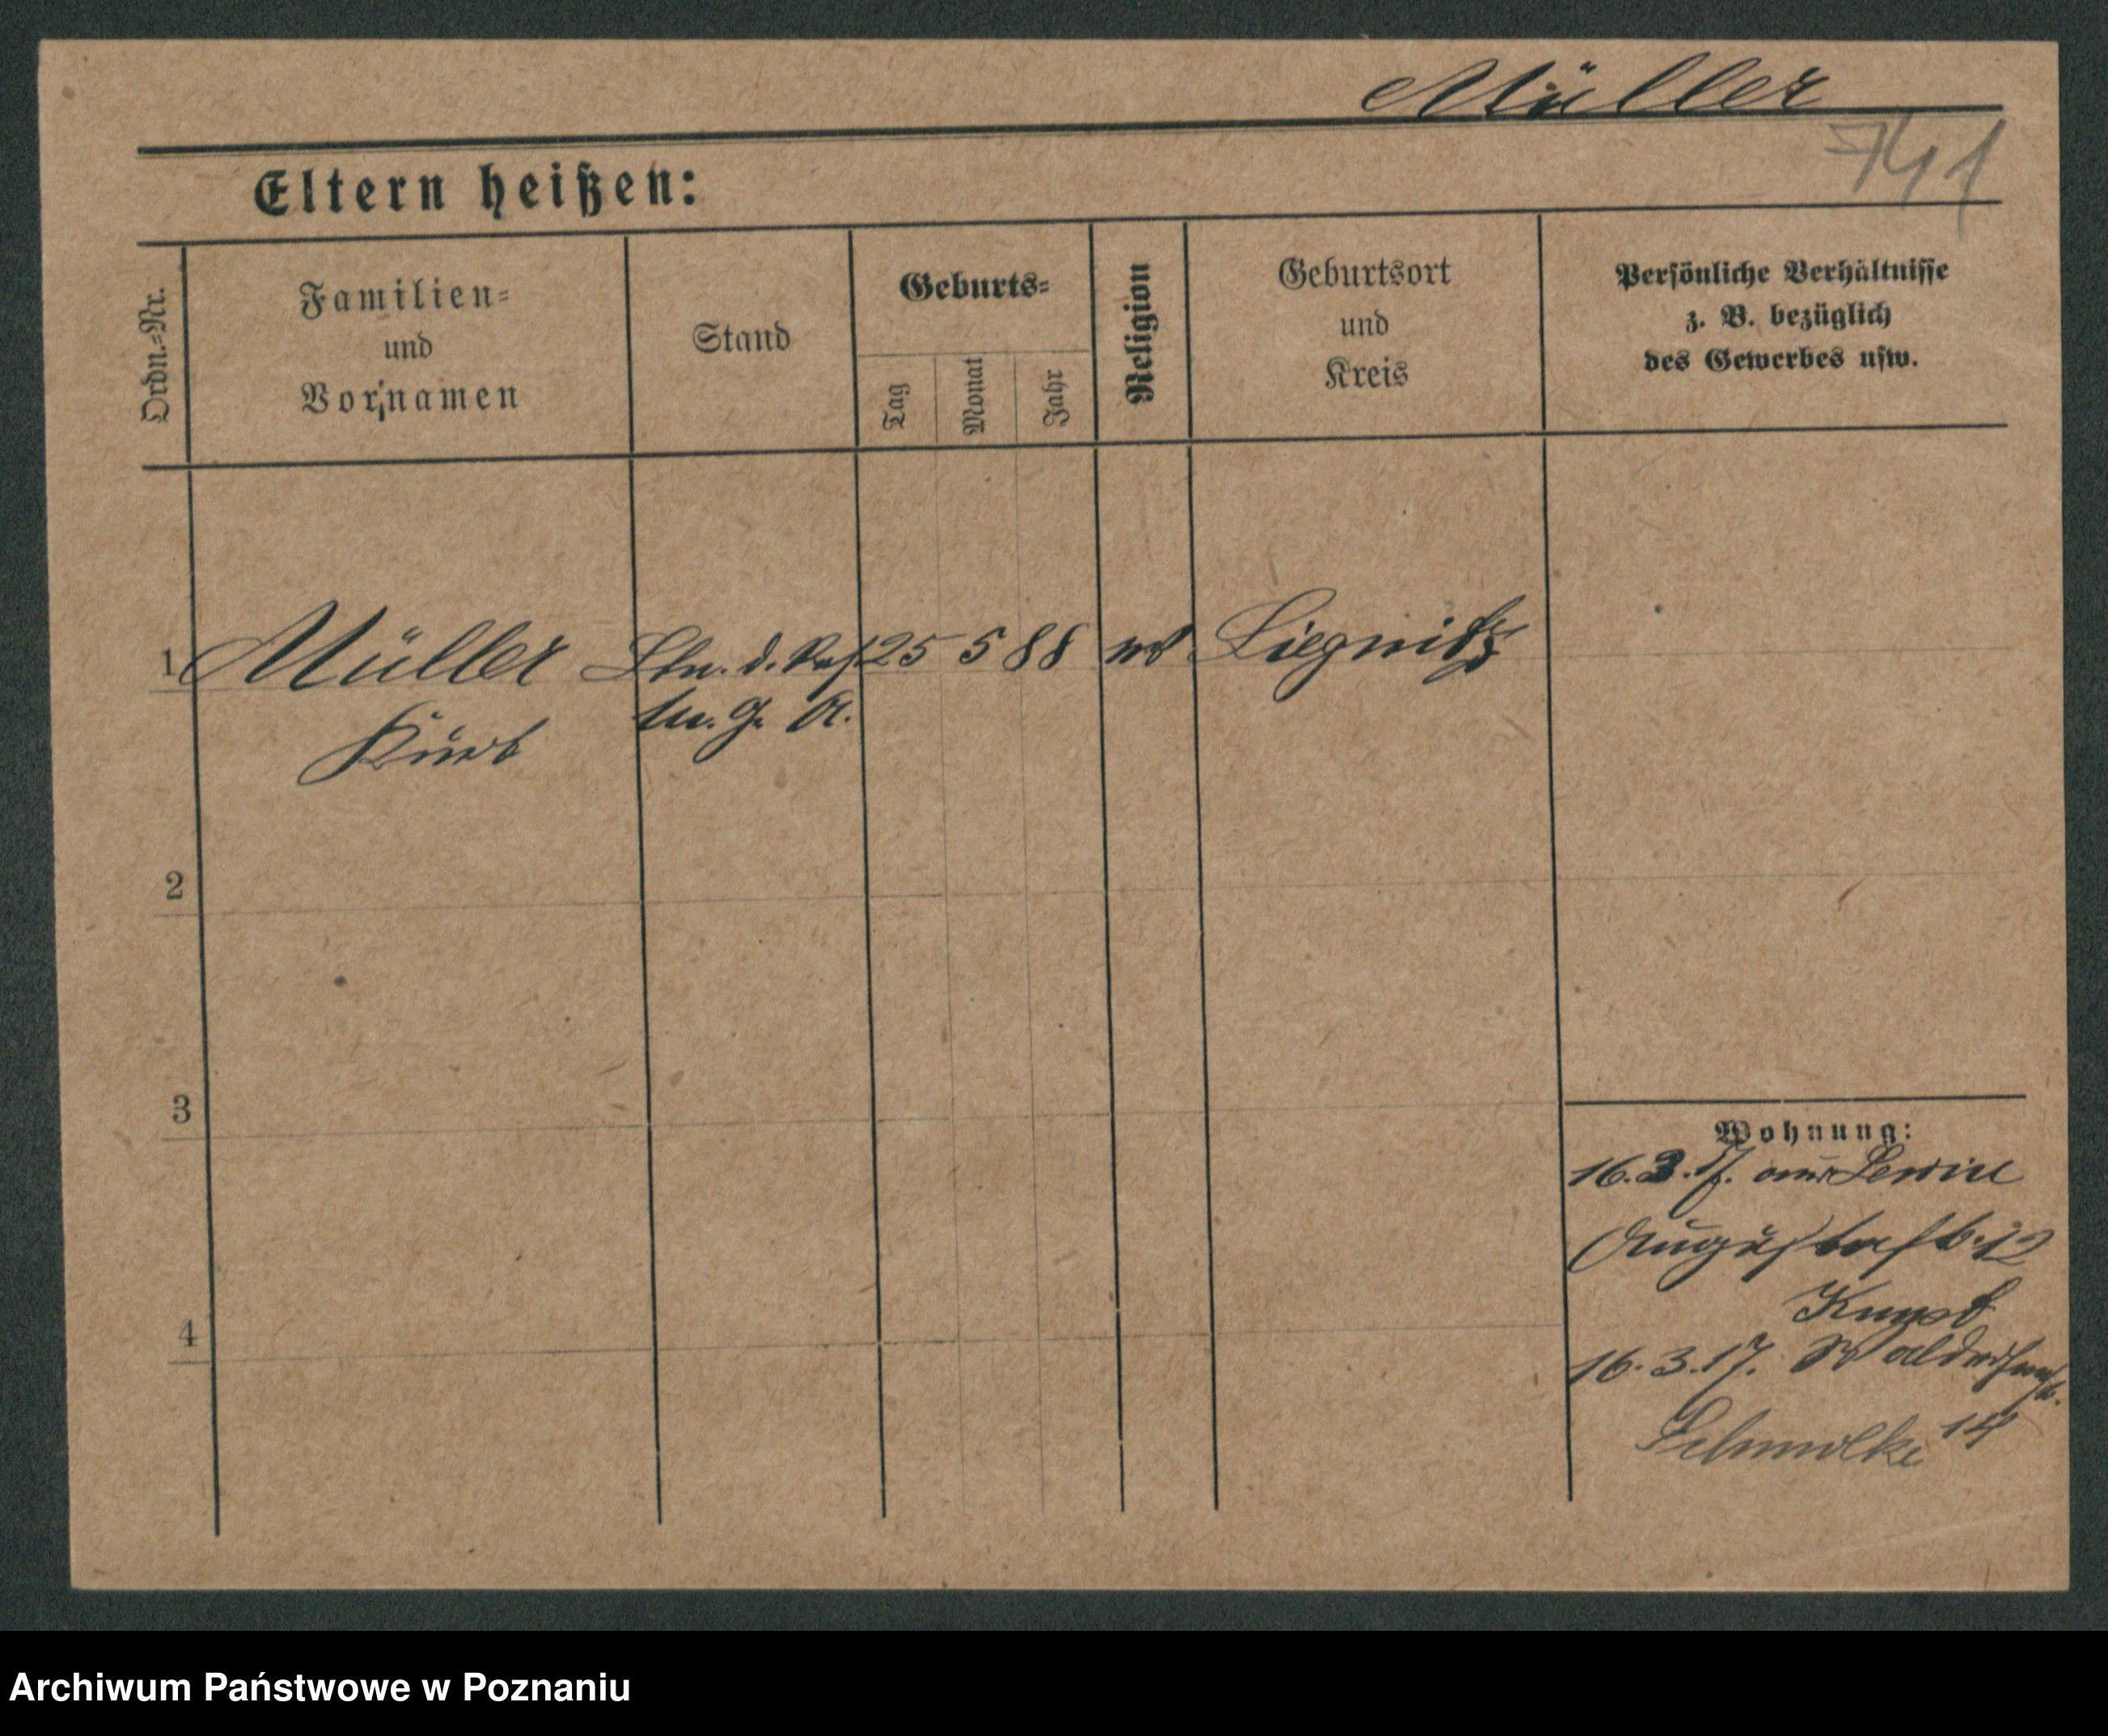 Müller
741
Eltern heißen:
Ordn.-Nr.
Familien-
und
Vornamen
Stand
Geburts-
Tag
Monat
Jahr
Religion
Geburtsort
und
Kreis
Persönliche Verhältnisse
z. B. bezüglich
des Gewerbes usw.
1 Müller Ltn. d. Res. 25 5 88 Liegnitz
Kurt
2
3
4
Wohnung:
16.3.17. aus Lewin
Augustastr. 12
16.3.17.
Schmolke 14
Archiwum Państwowe w Poznaniu